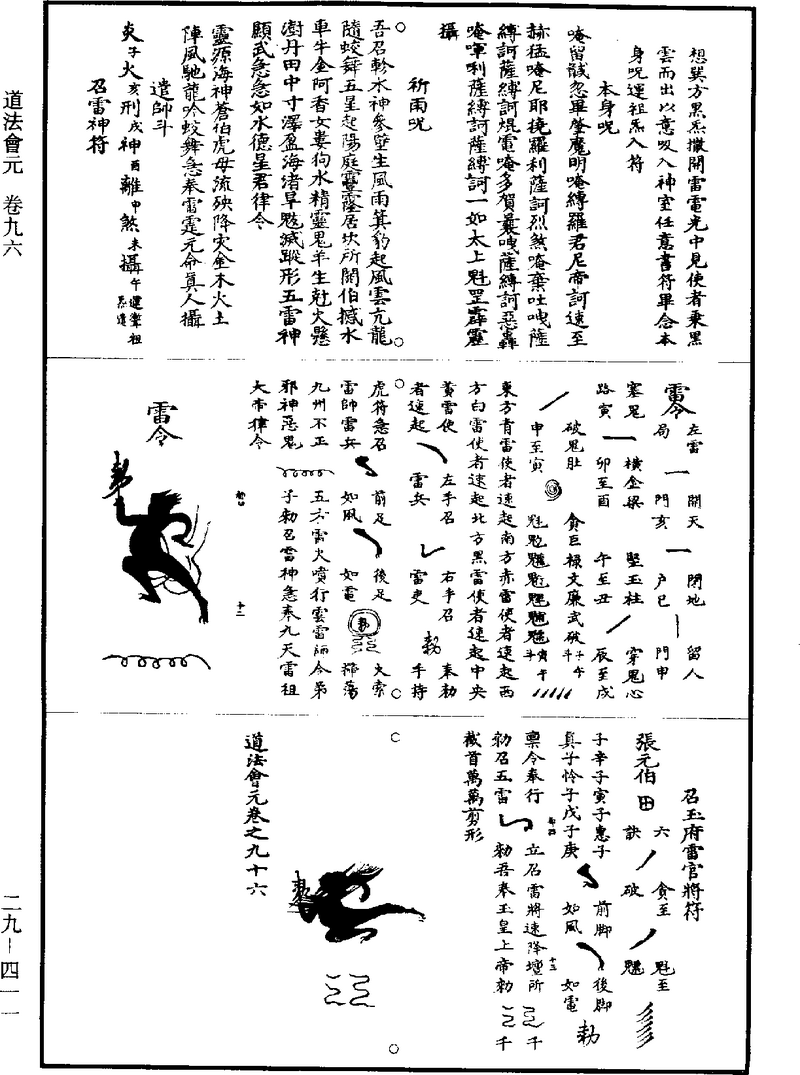 道法會元　卷九六
二九－四一一
想巽方黑炁撒開雷電光中見使者乘黑
雲而出以意吸入神室任意書符畢念本
身呪運祖炁入符
本身呪
唵留
忍畢
魔明唵縛羅君尼帝訶速至
赫猛唵尼耶
羅利薩訶烈煞唵葉吐㖿薩
縛訶薩縛訶焜電唵多賀曩㖿薩縛訶惡轟
唵㖸唎薩縛訶薩縛訶一如太上魁罡霹靂
攝
祈雨呪
吾召軫水神參壁生風雨箕豹起風雲亢龍
隨蛟舞五星起陽庭靈
居坎所開伯撼水
車牛金阿香女婁狗水精靈鬼羊生尅火懸
澍丹田中寸澤盈海渚旱魃滅蹤形五雷神
顧武急急如水德星君律令
靈源海神蒼伯虎母流殃降灾金木火土
陣風馳龍吟蛟舞急奉雷霆元命眞人攝
遣帥斗
炎子火亥刑戌神酉離申煞未攝午運聚祖炁遣
召雷神符
雷令
左雷局
開天門亥
閉地户巳
留人門申
塞鬼路寅
橫金梁卯至酉
竪玉柱午至丑
穿鬼心辰至戌
破鬼肚申至寅
貪巨祿文廉武破
東方青雷使者速起南方赤雷使者速起西
方白雷使者速起北方黑雷使者速起中央
黃雷使者速起
左手召雷兵
右手召雷吏
奉勑手持
虎符急召雷帥雷兵
前足如風
後足如電
火索掃蕩
九州不正邪神惡鬼
五方雷火噴行雲雷師令弟
子勑召雷神急奉九天雷祖
大帝律令
雷令
勑
十二
召玉府雷官將符
張元伯
六訣
貪至破
魁至魒
子辛子寅子惠子
真子怜子戊子庚
前脚如風
後脚如電
勑
禀令奉行
立召雷將速降壇所
千
勑召五雷
勑吾奉玉皇上帝勑
千
截首萬萬剪形
道法會元卷之九十六